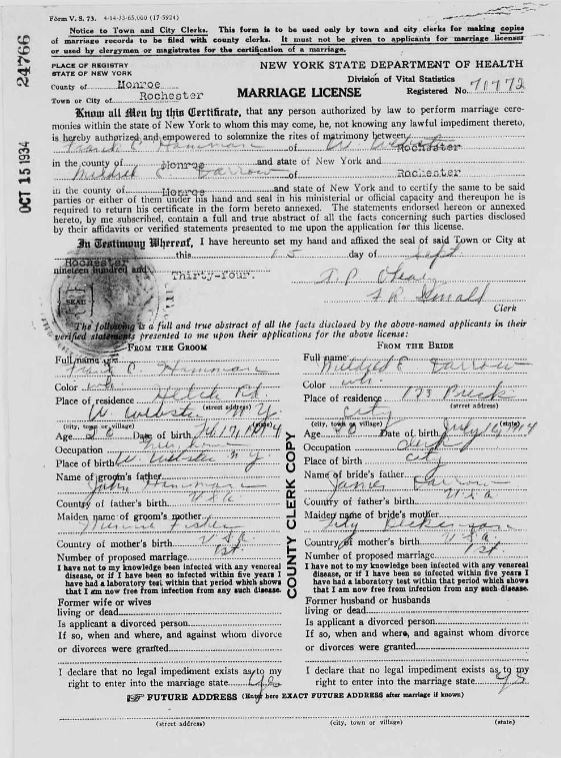 Form V. S. 73. 4-14-33-65,000 (17-5924)
Notice to Town and City Clerks. This form is to be used only by town and city clerks for making copies
of marriage records to be filed with county clerks. It must not be given to applicants for marriage licenses
or used by clergymen or magistrates for the certification of a marriage.
24766
OCT 15 1934
PLACE OF REGISTRY
STATE OF NEW YORK
County of Monroe
Town or City of Rochester
NEW YORK STATE DEPARTMENT OF HEALTH
Division of Vital Statistics
Registered No. 70772
MARRIAGE LICENSE
Know all Men by this Certificate, that any person authorized by law to perform marriage cere-
monies within the state of New York to whom this may come, he, not knowing any lawful impediment thereto,
is hereby authorized and empowered to solemnize the rites of matrimony between
Frank C. Hamman of W. Webster Rochester
in the county of Monroe and state of New York and
Mildred E Darrow of Rochester
in the county of Monroe and state of New York and to certify the same to be said
parties or either of them under his hand and seal in his ministerial or official capacity and thereupon he is
required to return his certificate in the form hereto annexed. The statements endorsed hereon or annexed
hereto, by me subscribed, contain a full and true abstract of all the facts concerning such parties disclosed
by their affidavits or verified statements presented to me upon the application for this license.
In Testimony Whereof, I have hereunto set my hand and affixed the seal of said Town or City at
Rochester this 15 day of Sept
nineteen hundred and Thirty-four.
SEAL
T. P. O'Leary
Clerk
The following is a full and true abstract of all the facts disclosed by the above-named applicants in their
verified statements presented to me upon their applications for the above license:
FROM THE GROOM
Full name Frank C. Hamman
Color wh.
Place of residence Rd
W Webster N Y. (street address)
(city, town or village) (state)
Age 20 Date of birth 17, 1914
Occupation
Place of birth W Webster N Y
Name of groom's father
John Hamman
Country of father's birth U S A
Maiden name of groom's mother
Minnie Fisher
Country of mother's birth U S A
Number of proposed marriage 1st
I have not to my knowledge been infected with any venereal
disease, or if I have been so infected within five years I
have had a laboratory test within that period which shows
that I am now free from infection from any such disease.
Former wife or wives
living or dead
Is applicant a divorced person
If so, when and where, and against whom divorce
or divorces were granted
I declare that no legal impediment exists as to my
right to enter into the marriage state yes
COUNTY CLERK COPY
FROM THE BRIDE
Full name Mildred E Darrow
Color wh.
Place of residence 173
City (street address)
(city, town or village) (state)
Age 20 Date of birth July 14, 1914
Occupation Clerk
Place of birth City
Name of bride's father
James Darrow
Country of father's birth U S A
Maiden name of bride's mother
Country of mother's birth U S A
Number of proposed marriage 1st
I have not to my knowledge been infected with any venereal
disease, or if I have been so infected within five years I
have had a laboratory test within that period which shows
that I am now free from infection from any such disease.
Former husband or husbands
living or dead
Is applicant a divorced person
If so, when and where, and against whom divorce
or divorces were granted
I declare that no legal impediment exists as to my
right to enter into the marriage state yes
FUTURE ADDRESS (Enter here EXACT FUTURE ADDRESS after marriage if known)
(street address) (city, town or village) (state)